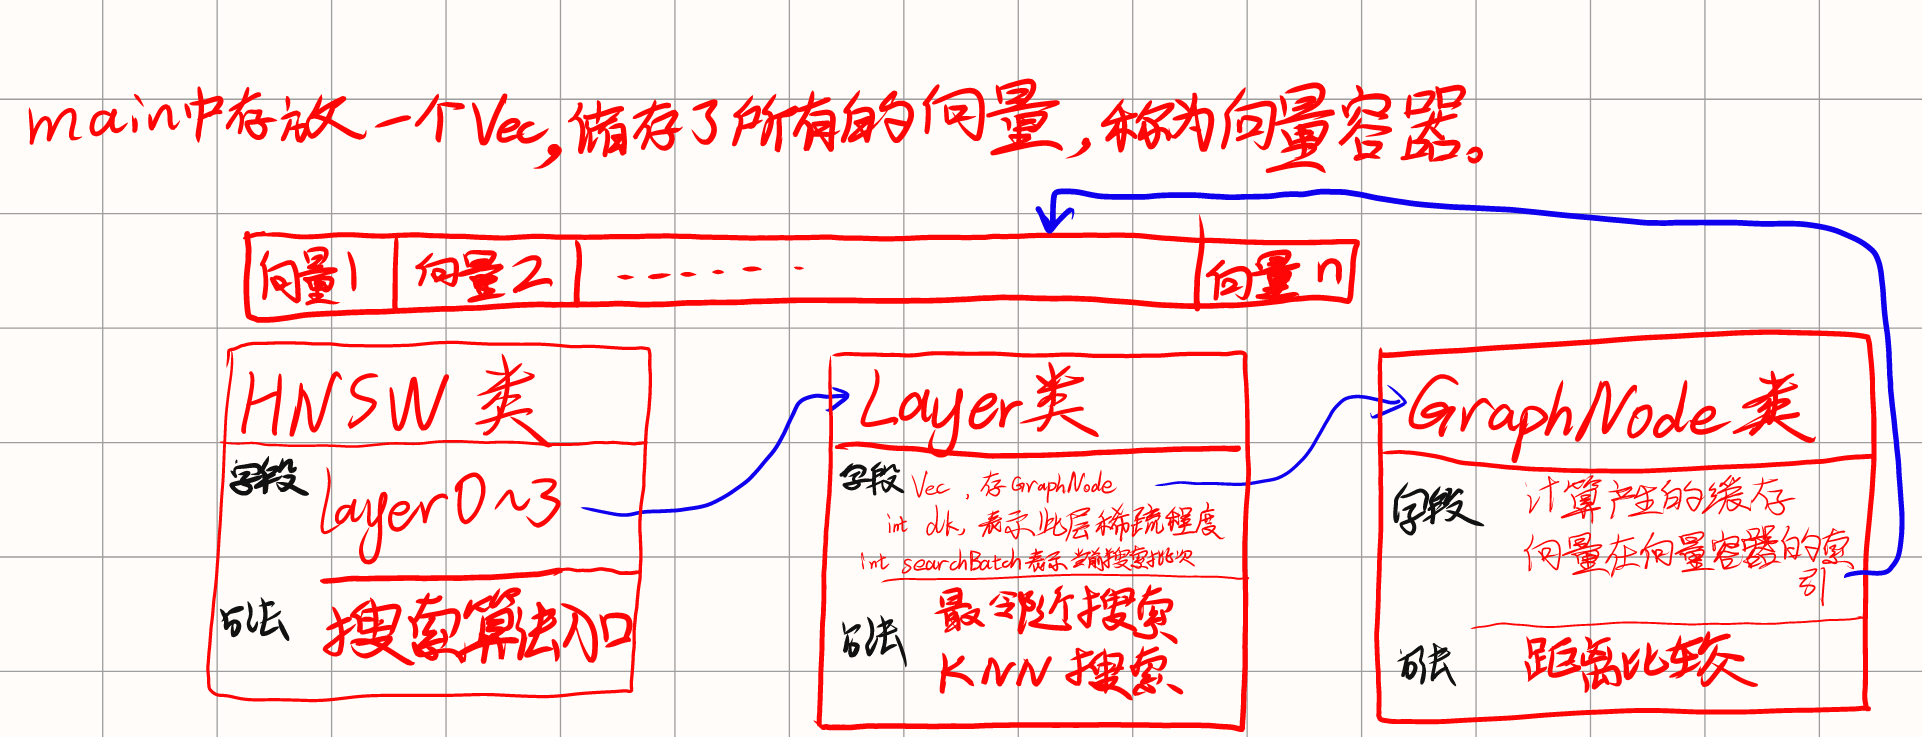 main中存放一个Vec,储存了所有的向量,称为向量容器。
向量1 向量2 ------- 向量n
HNSW类
字段 Layer0~3
方法 搜索算法入口
Layer类
字段 Vec,存GraphNode
int dk,表示此层稀疏程度
int searchBatch表示当前搜索批次
方法 最邻近搜索
KNN搜索
GraphNode类
字段 计算产生的缓存
向量在向量容器的索
引
方法 距离比较